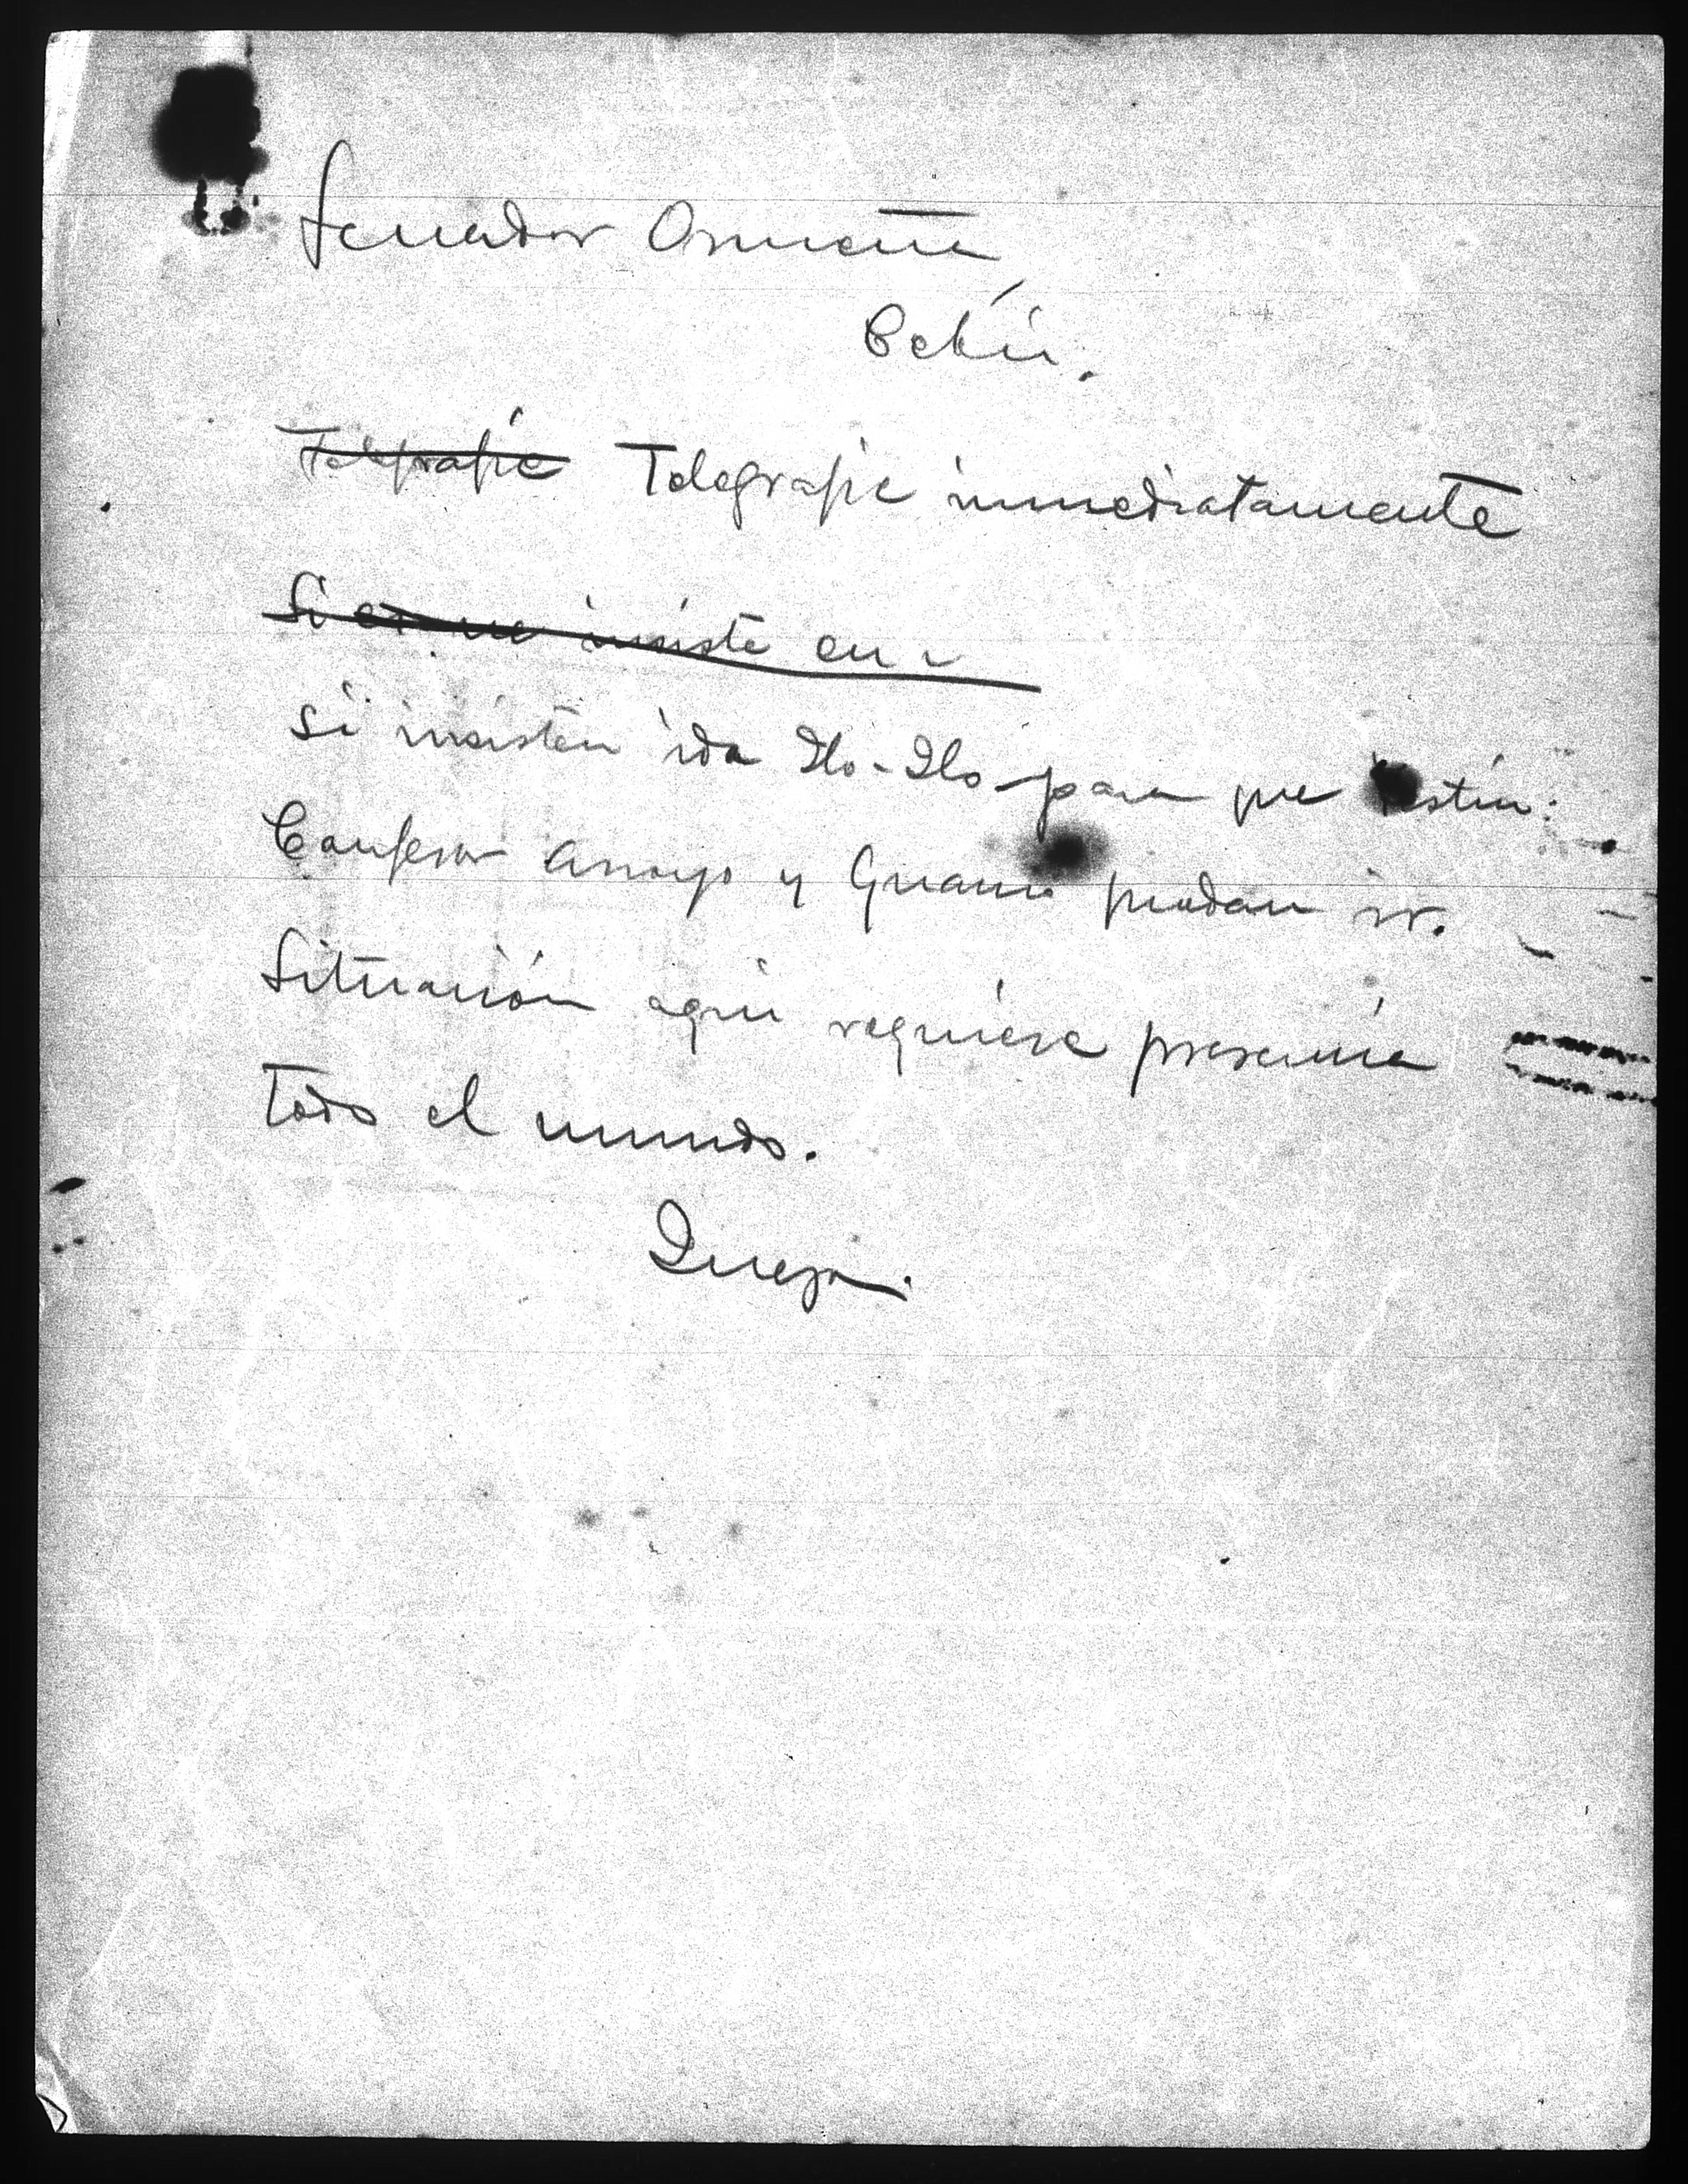 Senador Osmeña,
Cebú.
Telegrafie Telegrafie inmediatamente
Si insiste en
si insisten ida Ilo-Ilo para que
Confesor Arroyo y puedan ir.
Situación aqui requiere presencia
todo el mundo.
Quezon.